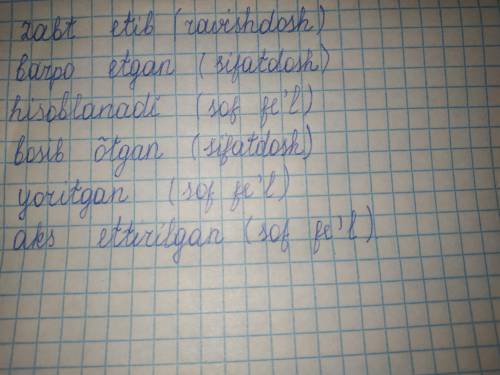 zabt etib (ravishdosh)
barpo etgan (sifatdosh)
hisoblanadi (sof fe'l)
bosib õtgan (sifatdosh)
yoritgan (sof fe'l)
aks ettirilgan (sof fe'l)